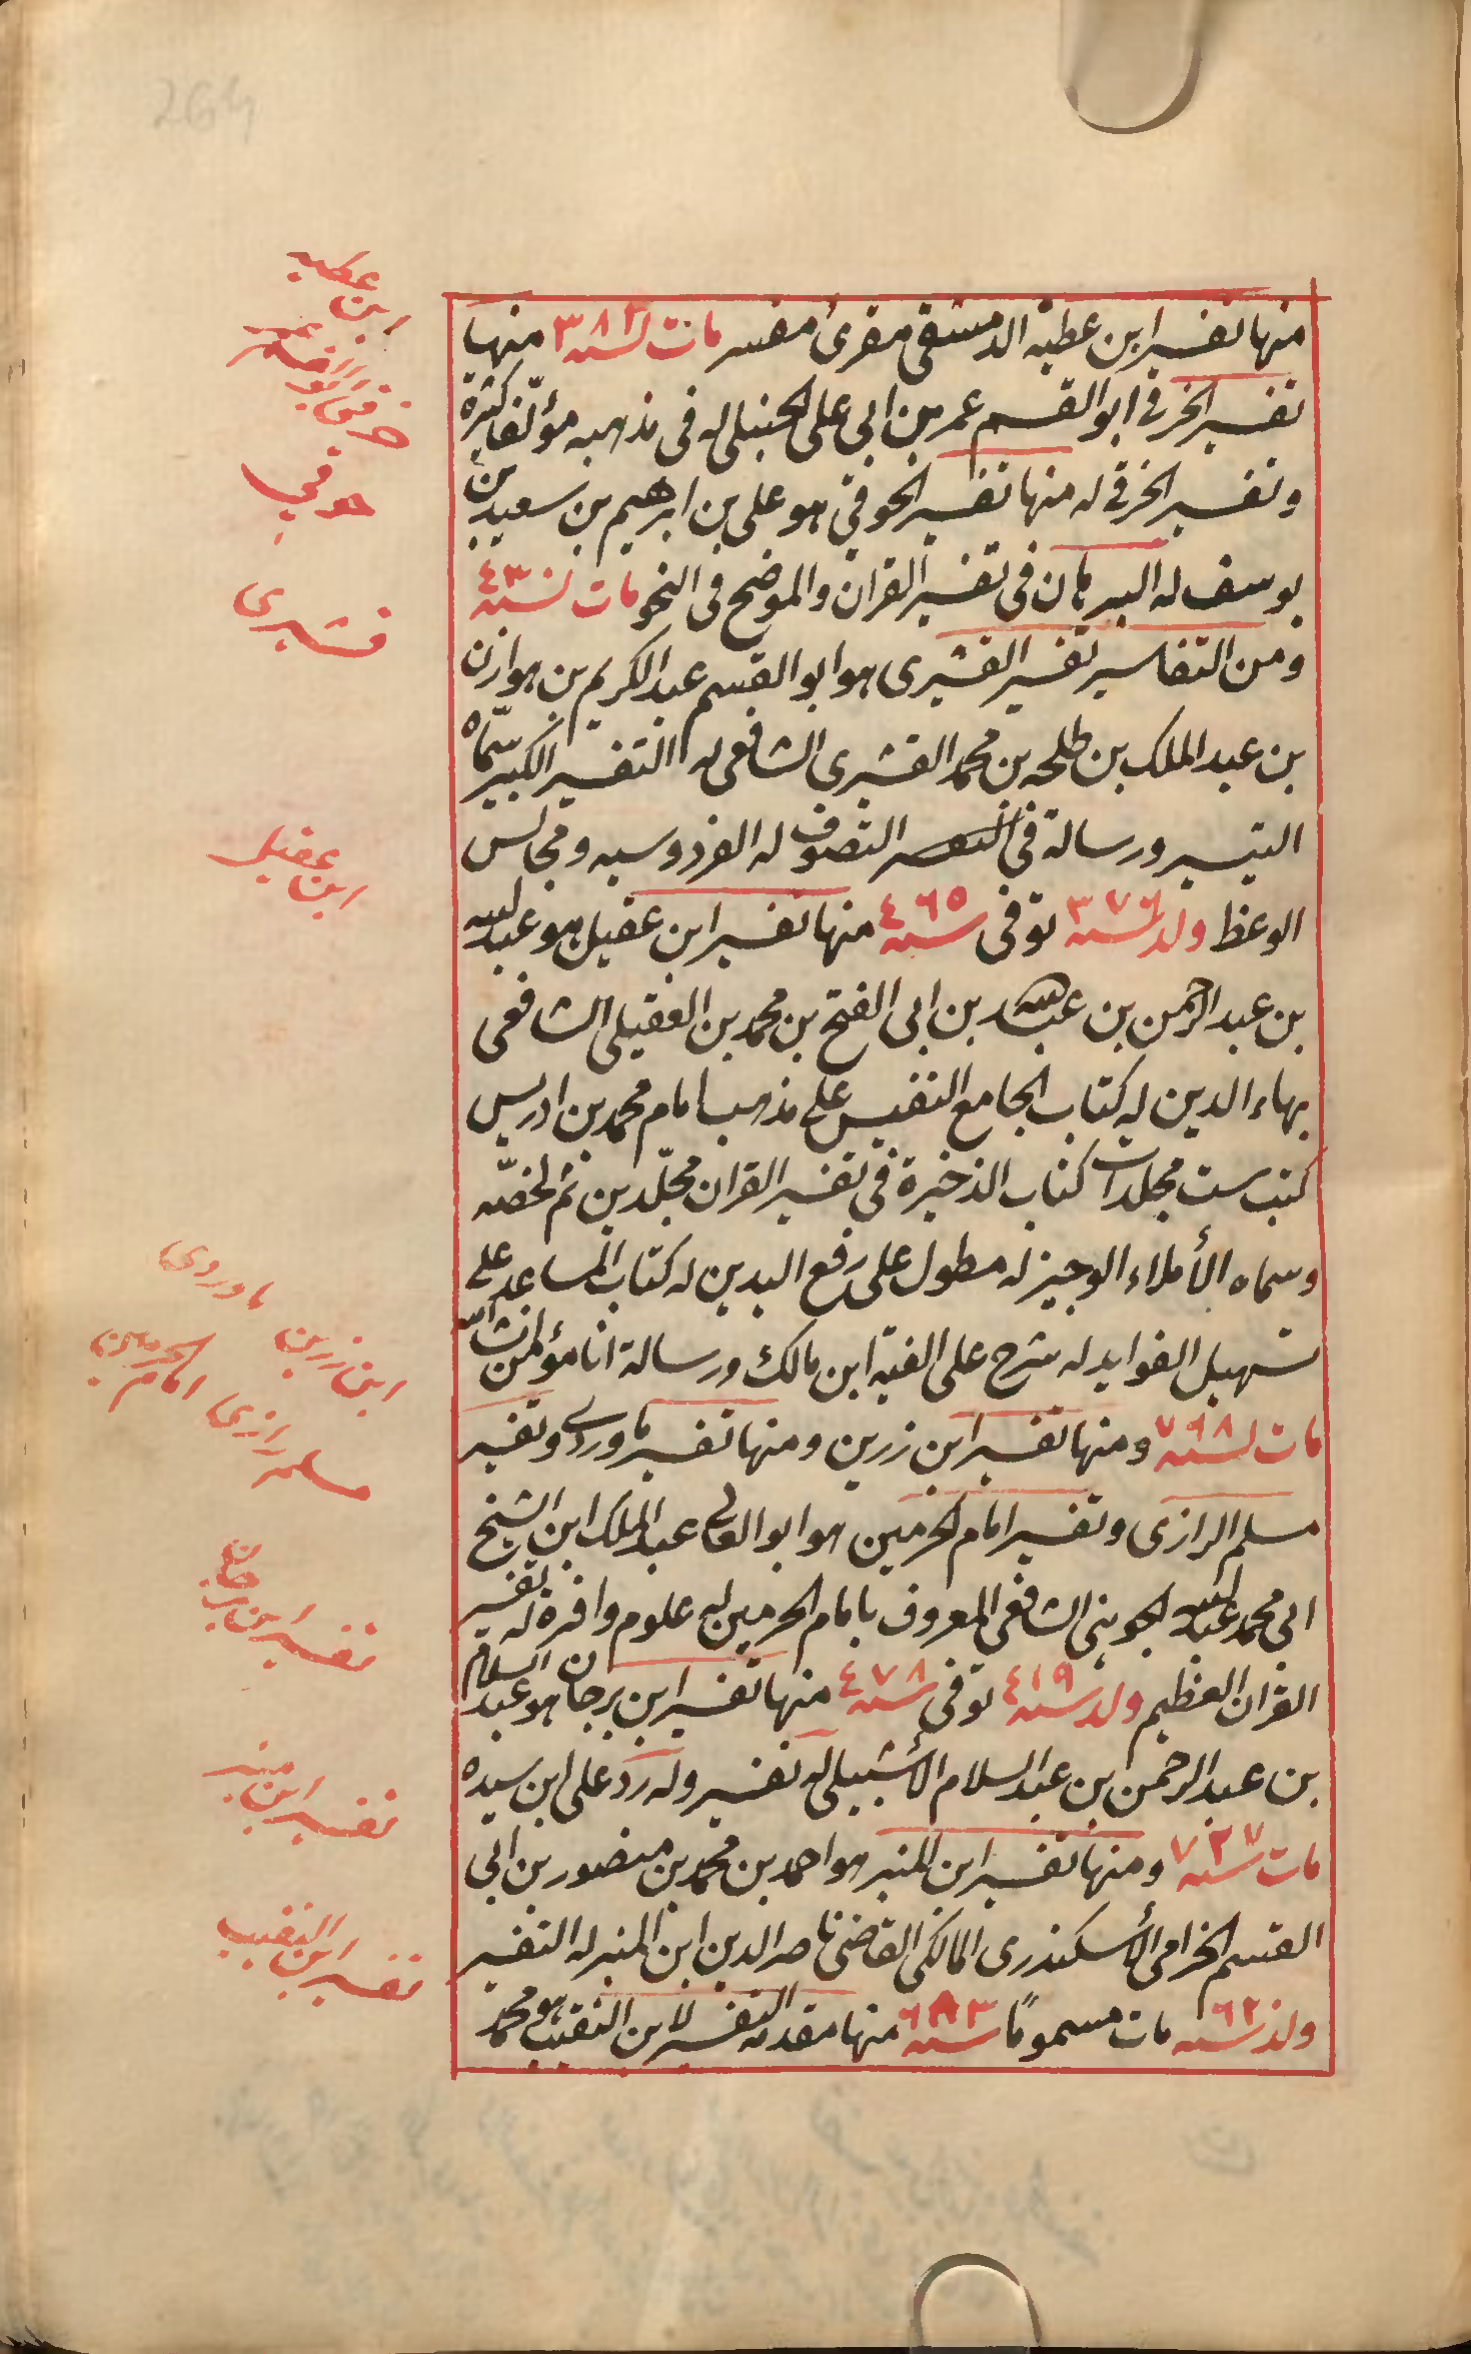 264
منها تفسير ابن عطية الدمشقى مقرئ مفسر مات لسنه ٣٨٣ منها
تفسير الخرقى ابو القسم عمر بن ابى على الحنبلى له فى مذهبه مؤلفا كثيرة
وتفسير الخرقى له منها تفسير الحوفى هو على بن ابرهيم بن سعيد بن
يوسف له البرهان فى تفسير القران والموضح فى النحو مات لسنه ٤٣
ومن التفاسير تفسير القشيرى هو ابو القسم عبد الكريم بن هوازن
بن عبد الملك بن طلحه بن محمد القشيرى الشافعى له التفسير الكبير سماه
التيسير ورسالة فى التصوف له الفردوسيه ومجالس
الوعظ ولد لسنه ٣٧٦ توفى سنه ٤٦٥ منها تفسير ابن عقيل هو عبد الله
بن عبد الرحمن بن عبد الله بن ابى الفتح بن محمد بن العقيلى الشافعى
بهاء الدين له كتاب الجامع النفيس على مذهب امام محمد بن ادريس
كتب ست مجلدات كتاب الذخيرة فى تفسير القران مجلدين ثم لخصه
وسماه الأملاء الوجيز له مطول على رفع اليدين له كتاب المساعد على
تسهيل الفوايد له شرح على الفيه ابن مالك ورسالة انا مؤمن انشا الله
مات لسنه ٧٦٨ ومنها تفسير ابن زرين ومنها تفسير ماوردى وتفسير
مسلم الرازى وتفسير امام الحرمين هو ابو المعالى عبد الملك ابن الشيخ
ابى محمد عبد الله الجوينى الشافعى المعروف بامام الحرمين له علوم وافرة له تفسير
القران العظيم ولد سنه ٤١٩ توفى سنه ٤٧٨ منها تفسير ابن برجان هو عبد السلام
بن عبد الرحمن بن عبد السلام الأشبيلى له تفسير وله رد على ابن سيده
مات سنه ٧٢٧ ومنها تفسير ابن المنير هو احمد بن محمد بن منصور بن ابى
القسم الخرامى الأسكندرى المالكى القاضى ناصر الدين ابن المنير له التفسير
ولد سنه ٦٢ مات مسموما سنه ٦٨٣ منها مقدمه التفسير لابن النقيب هو محمد
ابن عطيه
خرقى ابو القسم عمر
حوفى
قشيرى
ابن عقيل
ماوردى
ابن زرين
امام الحرمين
مسلم رازى
تفسير ابن برجان
تفسير ابن منير
تفسير ابن النقيب